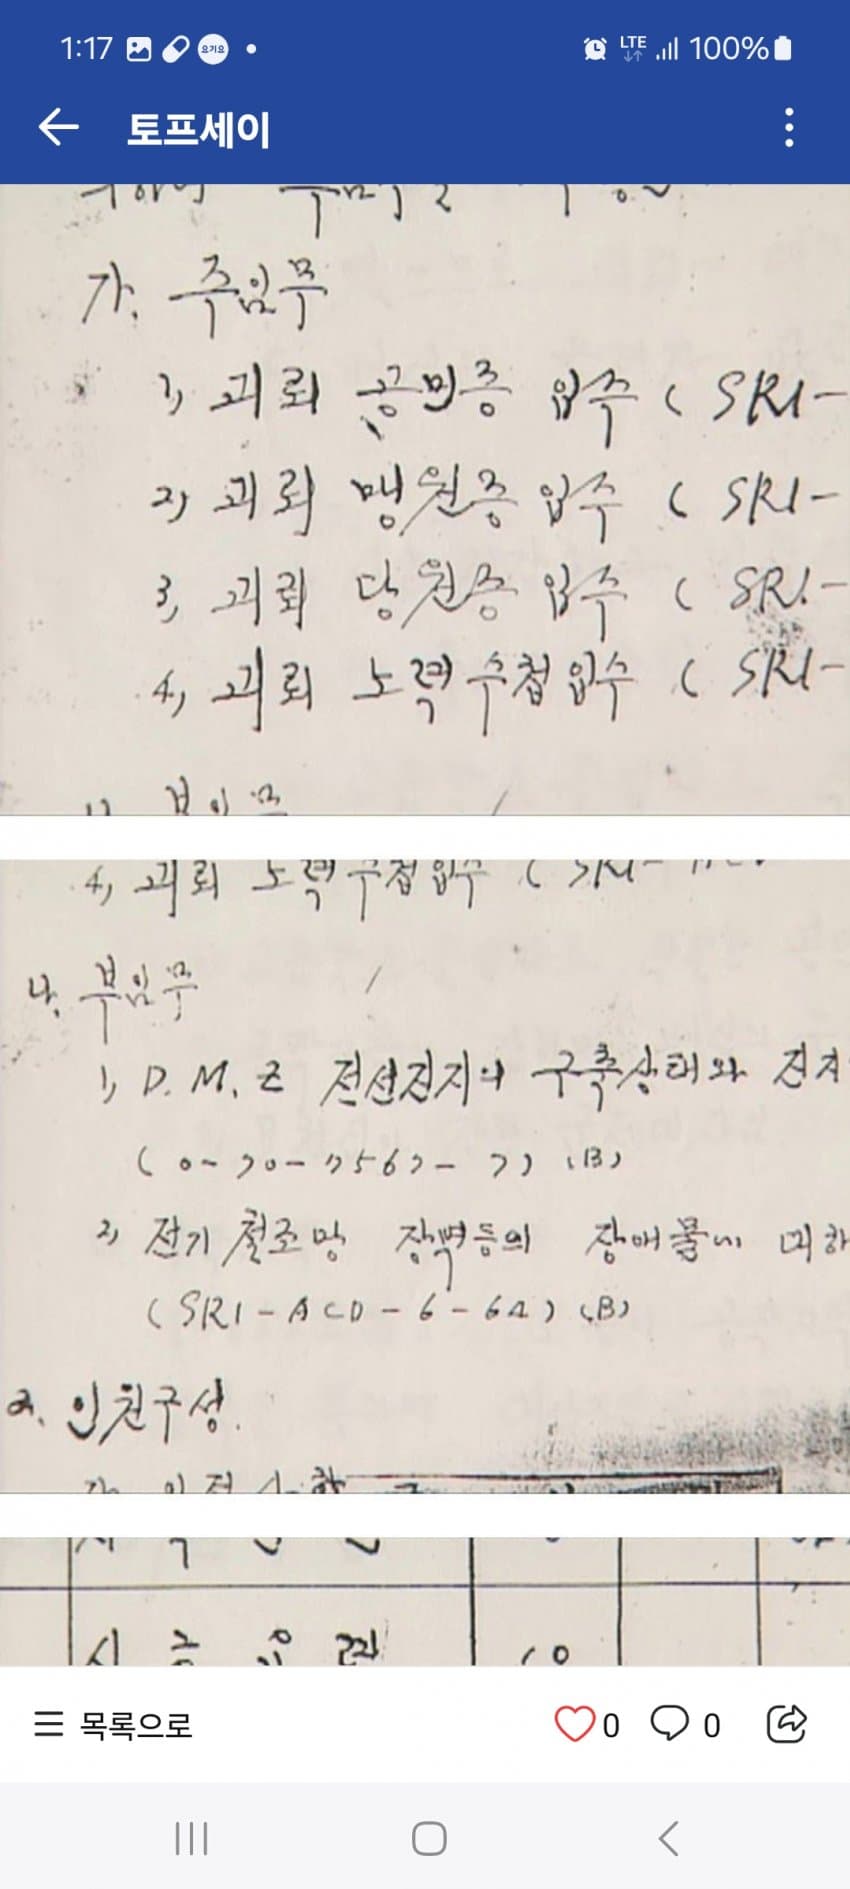 1:17 요기요 LTE 100%
토프세이
가. 주임무
1) 괴뢰 공민증 입수 ( SRI-
2) 괴뢰 맹원증 입수 ( SRI-
3) 괴뢰 당원증 입수 ( SRI-
4) 괴뢰 노력수첩입수 ( SRI-
부임무
4) 괴뢰 노력수첩입수 ( SRI-
나. 부임무
1) D.M.Z 전선진지의 구축상태와 진지
(B)
2) 전기철조망 장벽등의 장애물에 대하
(SRI-ACD-6-64) (B)
2. 인원구성.
10
목록으로 0 0